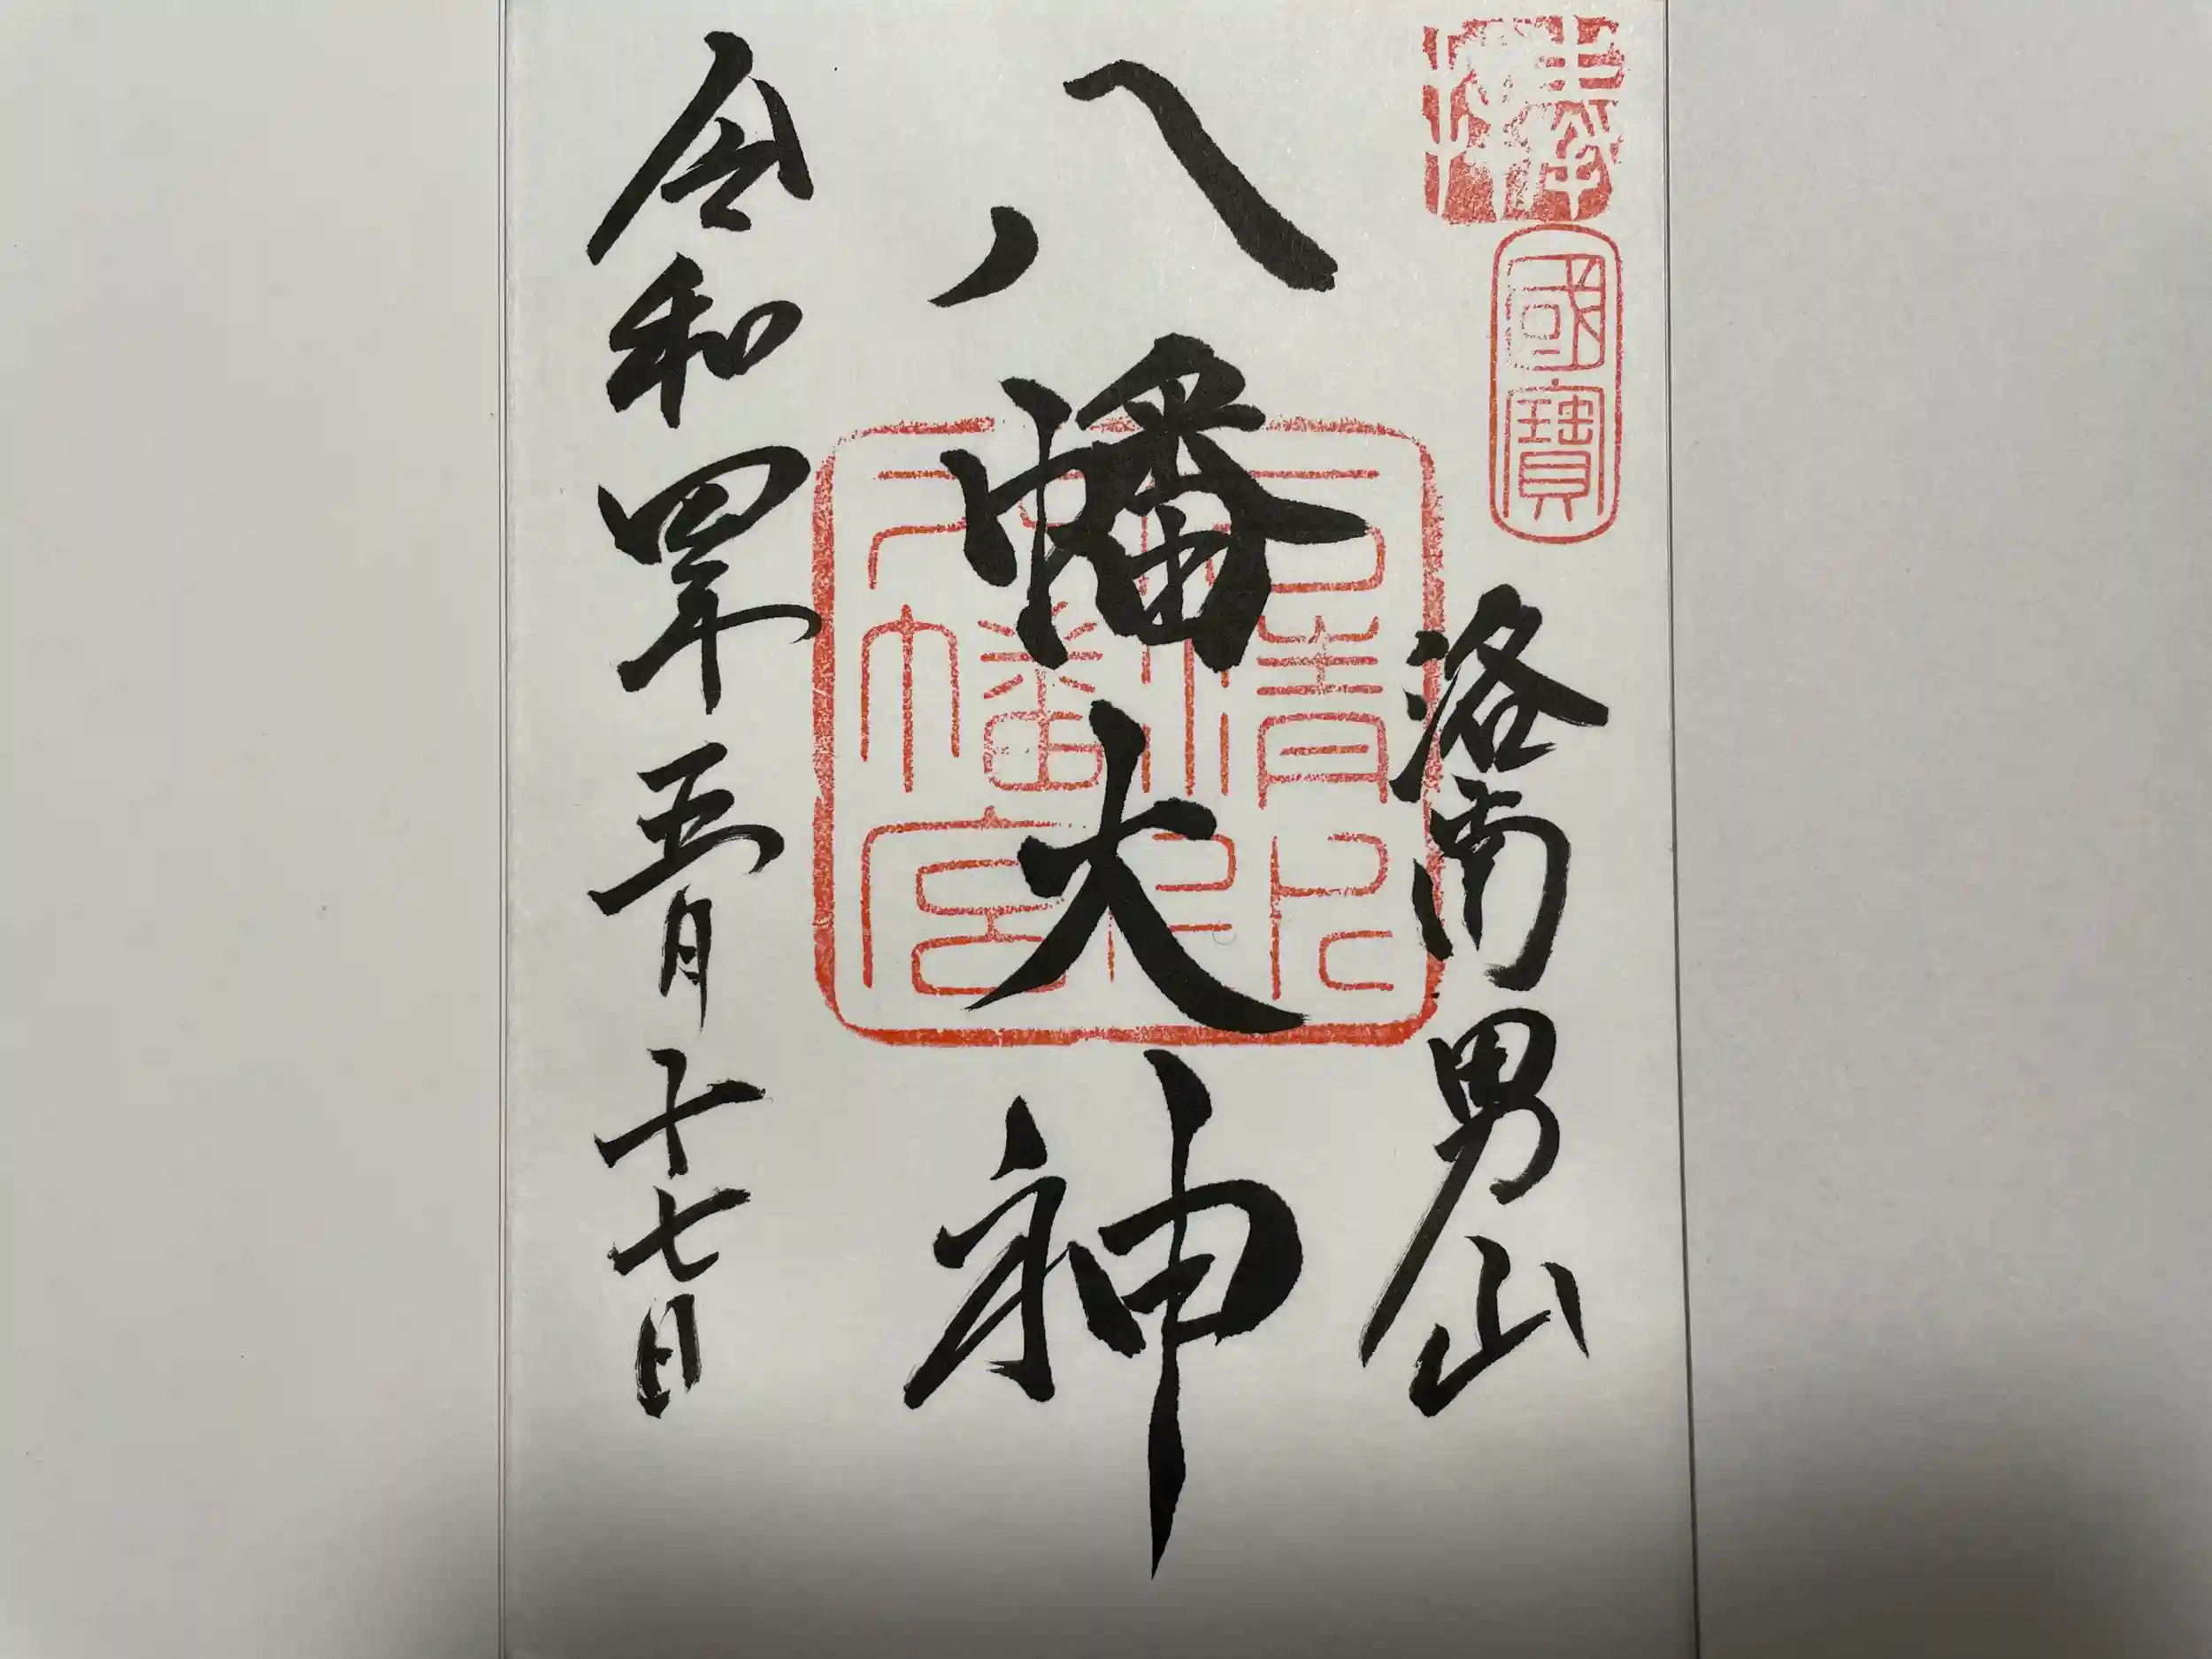 奉拝
國寶
洛南男山
八幡大神
石清水八幡宮印
令和四年五月十七日